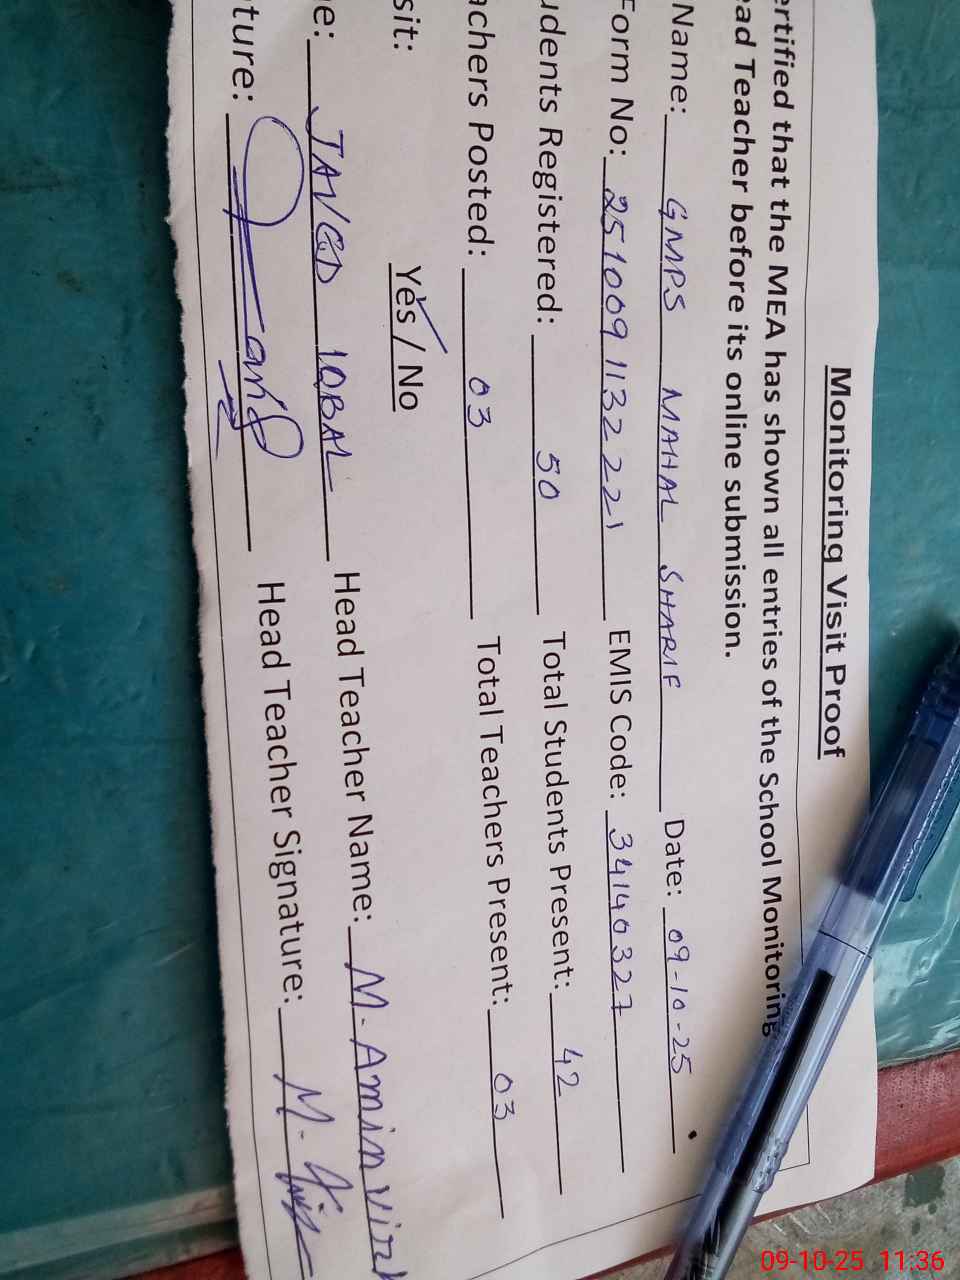 Monitoring Visit Proof
ertified that the MEA has shown all entries of the School Monitoring
ead Teacher before its online submission.
Name: GMPS MAHAL SHARIF Date: 09-10-25
Form No: 2510091132221 EMIS Code: 34140327
udents Registered: 50 Total Students Present: 42
achers Posted: 03 Total Teachers Present: 03
sit: Yes / No
e: JAVED IQBAL Head Teacher Name: M. Amin Virk
ture: Head Teacher Signature: M.
09-10-25 11:36